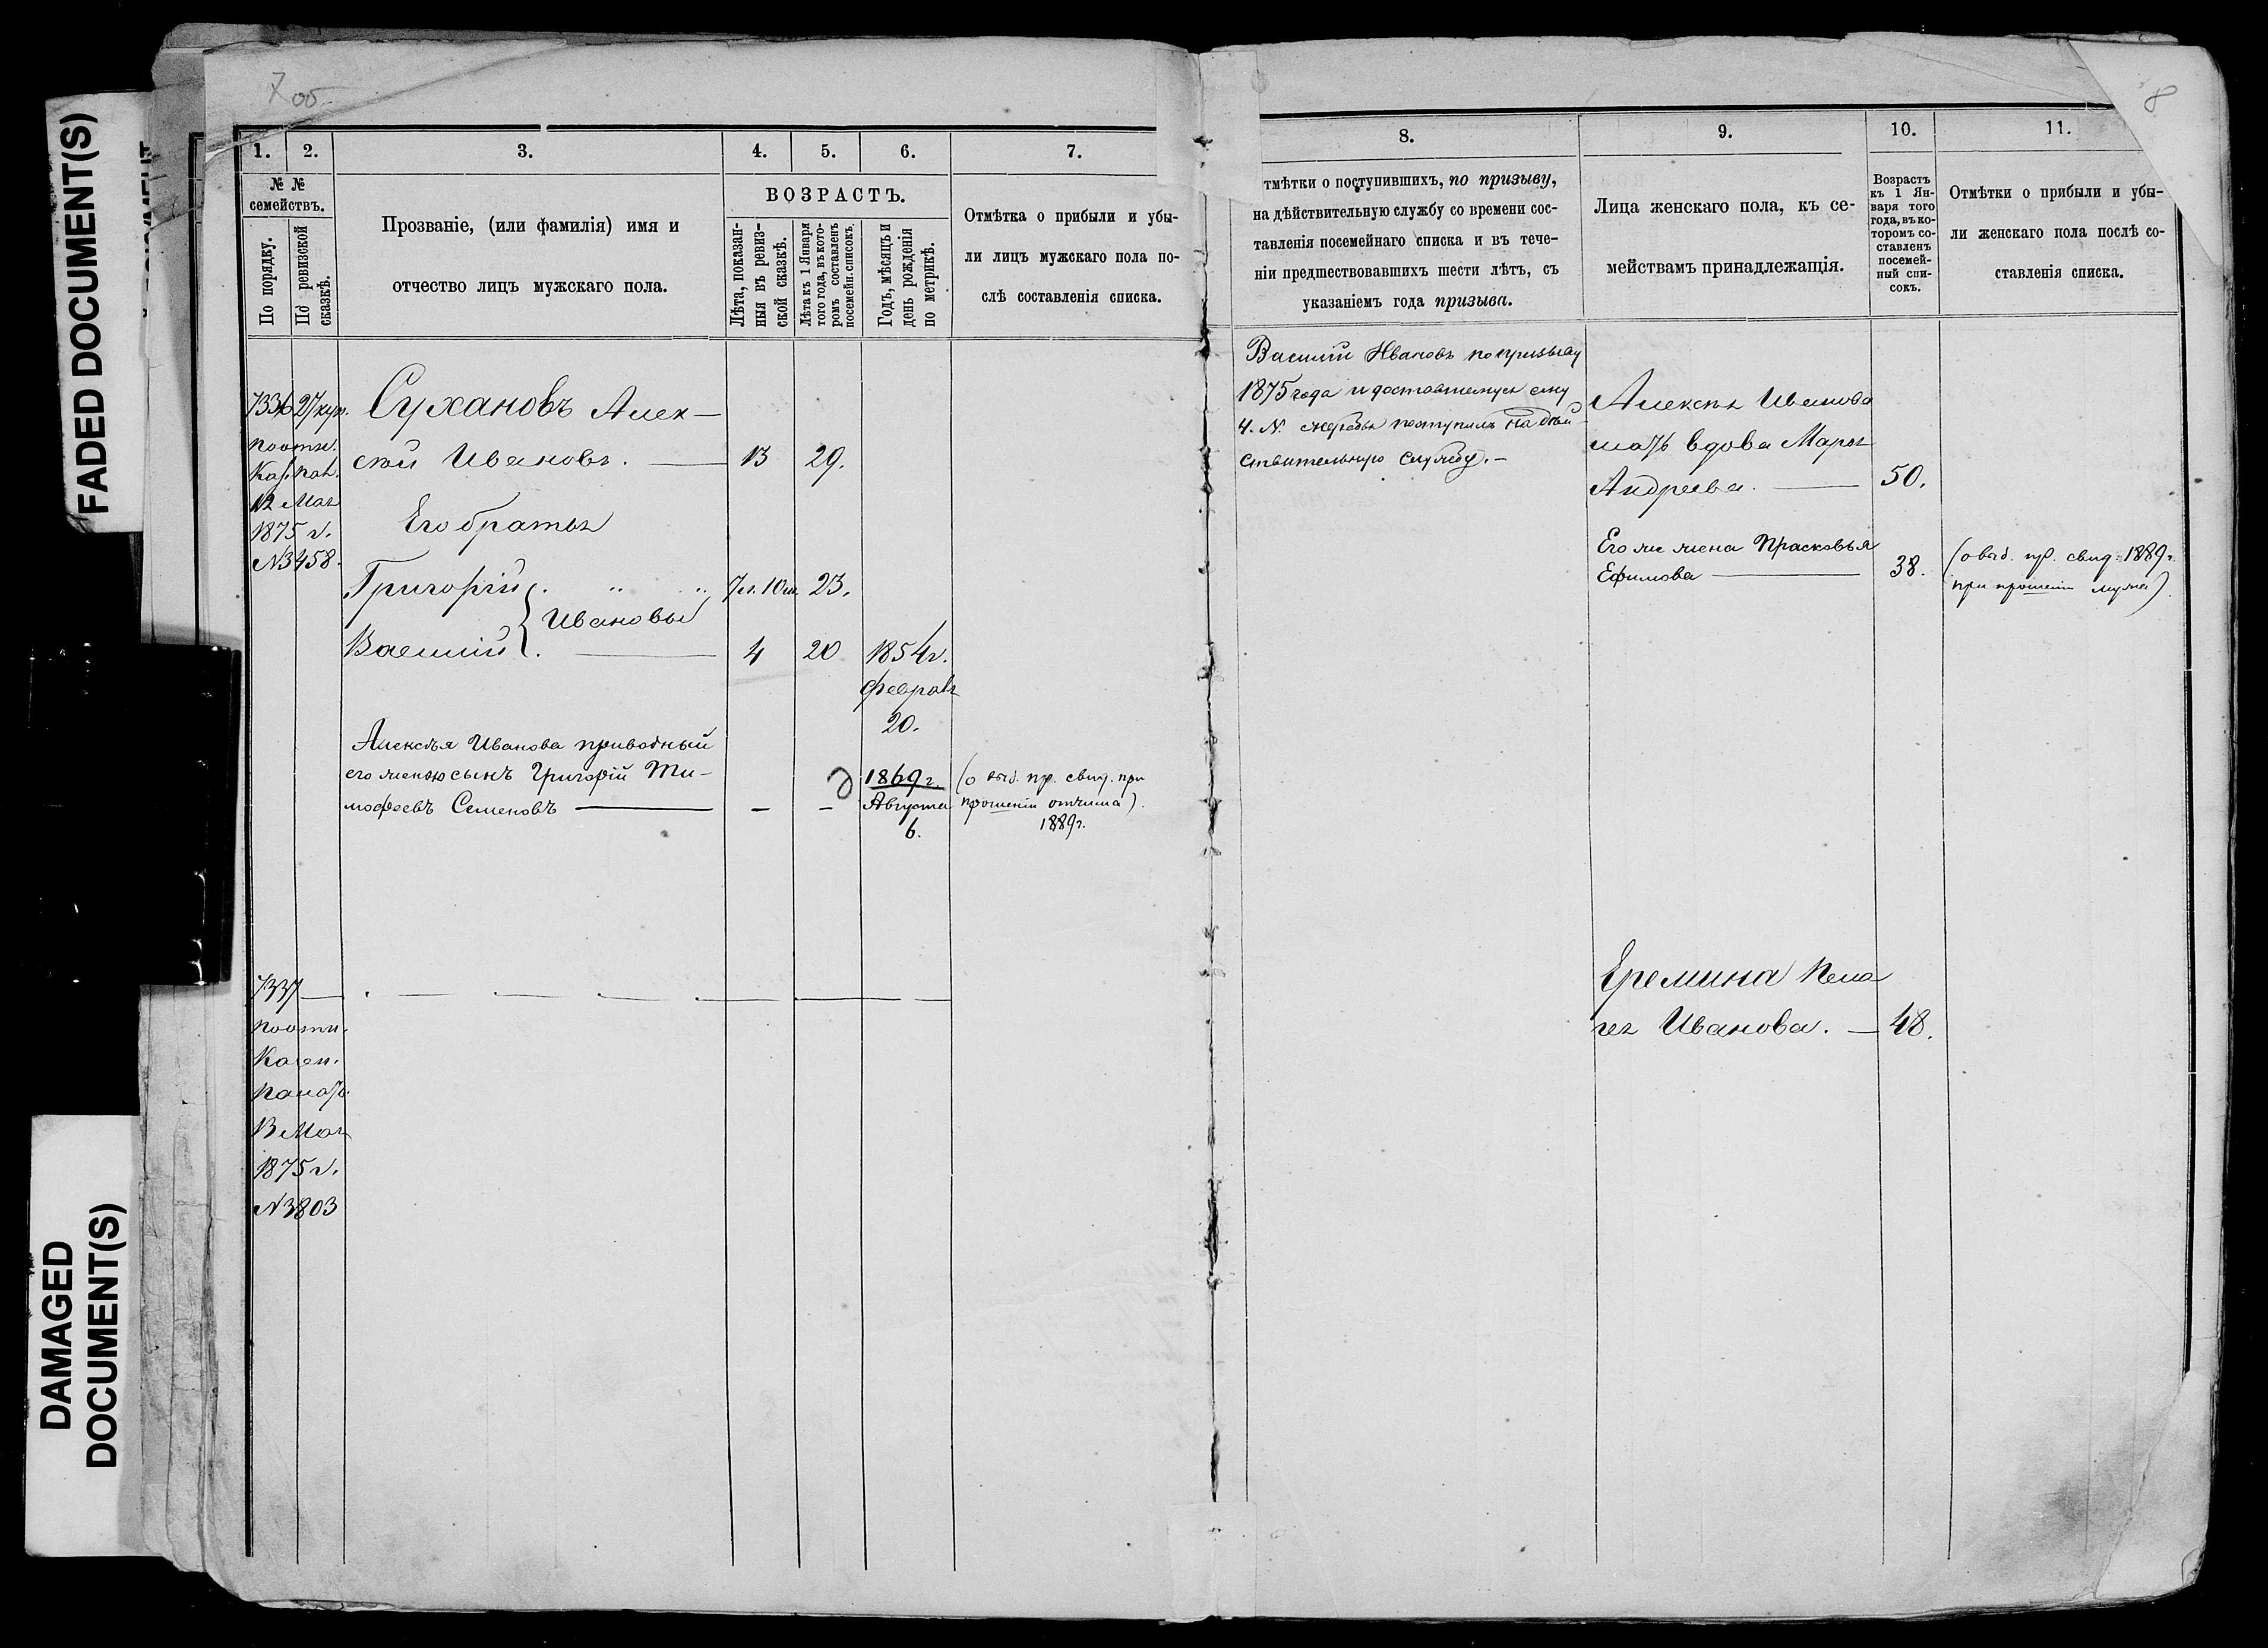 FADED DOCUMENT(S)
DAMAGED
DOCUMENT(S)
7об
1.
2.
3.
4.
5.
6.
7.
№ №
семействъ.
По порядку.
По ревизской
сказкѣ.
Прозваніе, (или фамилія) имя и
отчество лицъ мужскаго пола.
ВОЗРАСТЪ.
Лѣта, показан-
ныя въ ревиз-
ской сказкѣ.
Лѣта къ 1 Января
того года, въ кото-
ромъ составленъ
посемейн. списокъ.
Годъ, мѣсяцъ и
день рожденія
по метрикѣ.
Отмѣтка о прибыли и убы-
ли лицъ мужскаго пола по-
слѣ составленія списка.
7336 27 куп.
по отн.
Каз. пал.
12 Мая
1875 г.
№3458.
Сухановъ Алек-
сѣй Ивановъ. 13 29.
Его братья
Григорій Ивановы 7 л. 10 м. 23.
Василій 4 20 1854 г.
Февраля
20.
Алексѣя Иванова приводный
его женою сынъ Григорій Ти-
мофеевъ Семеновъ — — —
1869 г.
Августа
6.
(о выд. пр. свид. при
прошеніи отчима).
1889 г.
7337
по отн.
Казен.
палат.
13 Мая
1875 г.
№3803
8
8.
9.
10.
11.
тмѣтки о поступившихъ, по призыву,
на дѣйствительную службу со времени сос-
тавленія посемейнаго списка и въ тече-
ніи предшествовавшихъ шести лѣтъ, съ
указаніемъ года призыва.
Лица женскаго пола, къ се-
мействамъ принадлежащія.
Возрастъ
къ 1 Ян-
варя того
года, въ ко-
торомъ со-
ставленъ
посемей-
ный спи-
сокъ.
Отмѣтки о прибыли и убы-
ли женскаго пола послѣ со-
ставленія списка.
Василій Ивановъ по призыву
1875 года и доставшемуся ему
4. №. жеребья поступилъ на дѣй-
ствительную службу.-
Алексѣя Иванова
мать вдова Марья
Андреева. 50.
Его же жена Прасковья
Ефимова 38.
(о выд. пр. свид. 1889 г.
при прошеніи мужа)
Еремина Пела
гея Иванова. 48.